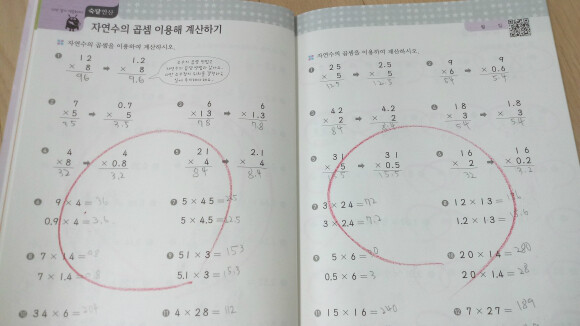 숙달 연산
자연수의 곱셈 이용해 계산하기
자연수의 곱셈을 이용하여 계산하시오.
12 → 1.2
× 8 × 8
96 9.6
7 → 0.7
× 5 × 5
3.5
6 → 6
× 13 × 1.3
78 7.8
4 → 4
× 8 × 0.8
32 3.2
21 → 2.1
× 4 × 4
84 8.4
9 × 4 = 36
0.9 × 4 = 3.6
5 × 45 =
5 × 4.5 =
7 × 14 =
7 × 1.4 =
51 × 3 = 153
5.1 × 3 = 15.3
34 × 6 =
4 × 28 = 112
자연수의 곱셈을 이용하여 계산하시오.
25 → 2.5
× 5 × 5
125 12.5
9 → 9
× 6 × 0.6
54 5.4
42 → 4.2
× 2 × 2
84
18 → 1.8
× 3 × 3
54
31 → 31
× 5 × 0.5
15.5
16 → 16
× 2 × 0.2
32 3.2
3 × 24 = 72
3 × 2.4 = 7.2
12 × 13 =
1.2 × 13 =
5 × 6 =
0.5 × 6 = 3
20 × 14 = 280
20 × 1.4 = 28
15 × 16 = 240
7 × 27 = 189